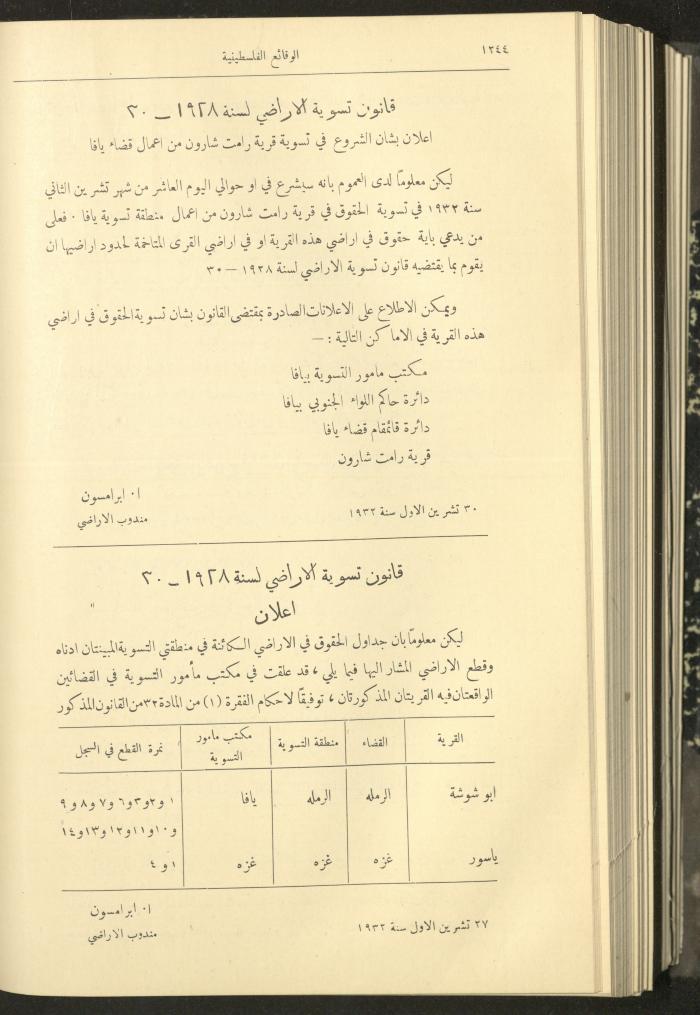 ١٢٤٤
الوقائع الفلسطينية
قانون تسوية الاراضي لسنة ١٩٢٨ – ٣٠
اعلان بشان الشروع في تسوية قرية رامت شارون من اعمال قضاء يافا
ليكن معلومًا لدى العموم بانه سيشرع في او حوالي اليوم العاشر من شهر تشرين الثاني
سنة ١٩٣٢ في تسوية الحقوق في قرية رامت شارون من اعمال منطقة تسوية يافا ٠ فعلى
من يدعي باية حقوق في اراضي هذه القرية او في اراضي القرى المتاخمة لحدود اراضيها ان
يقوم بما يقتضيه قانون تسوية الاراضي لسنة ١٩٢٨ – ٣٠
ويمكن الاطلاع على الاعلانات الصادرة بمقتضى القانون بشان تسوية الحقوق في اراضي
هذه القرية في الاماكن التالية : –
مكتب مامور التسوية بيافا
دائرة حاكم اللواء الجنوبي بيافا
دائرة قائمقام قضاء يافا
قرية رامت شارون
٣٠ تشرين الاول سنة ١٩٣٢
ا٠ ابرامسون
مندوب الاراضي
قانون تسوية الاراضي لسنة ١٩٢٨ – ٣٠
اعلان
ليكن معلومًا بان جداول الحقوق في الاراضي الكائنة في منطقتي التسوية المبينتان ادناه
وقطع الاراضي المشار اليها فيما يلي ، قد علقت في مكتب مأمور التسوية في القضائين
الواقعتان فيه القريتان المذكورتان ، توفيقًا لاحكام الفقرة (١) من المادة ٣٢ من القانون المذكور
القرية القضاء منطقة التسوية مكتب مامور التسوية نمرة القطع في السجل
ابو شوشة الرمله الرمله يافا ١ و٢ و٣ و٦ و٧ و٨ و٩
و١٠ و١١ و١٢ و١٣ و١٤
ياسور غزه غزه غزه ١ و ٤
٢٧ تشرين الاول سنة ١٩٣٢
ا٠ ابرامسون
مندوب الاراضي